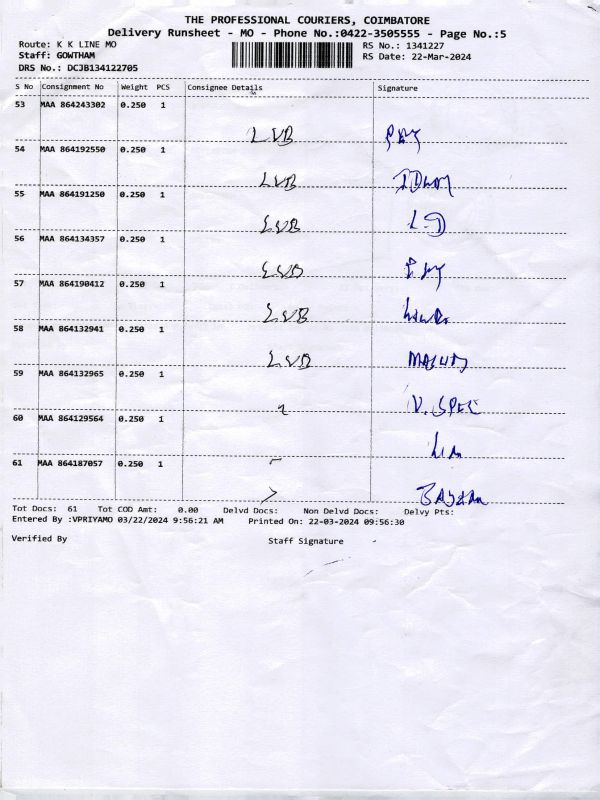 THE PROFESSIONAL COURIERS, COIMBATORE
Delivery Runsheet - MO - Phone No.:0422-3505555 - Page No.:5
Route: K K LINE MO
RS No.: 1341227
Staff: GOWTHAM
RS Date: 22-Mar-2024
DRS No.: DCJB134122705
S No Consignment No Weight PCS Consignee Details Signature
53 MAA 864243302 0.250 1
LVB
54 MAA 864192550 0.250 1
LVB
55 MAA 864191250 0.250 1
LVB
56 MAA 864134357 0.250 1
LVB
57 MAA 864190412 0.250 1
LVB
58 MAA 864132941 0.250 1
LVB
59 MAA 864132965 0.250 1
60 MAA 864129564 0.250 1
61 MAA 864187057 0.250 1
Tot Docs: 61 Tot COD Amt: 0.00 Delvd Docs: Non Delvd Docs: Delvy Pts:
Entered By :VPRIYAMO 03/22/2024 9:56:21 AM Printed On: 22-03-2024 09:56:30
Verified By Staff Signature